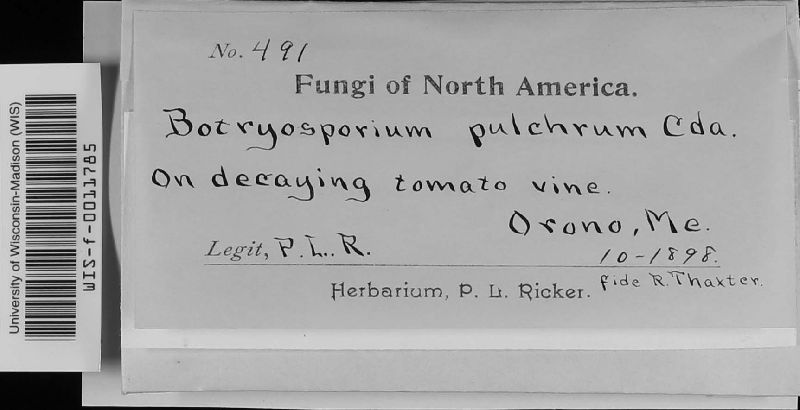 No. 491
Fungi of North America.
Botryosporium pulchrum Cda.
On decaying tomato vine.
Orono, Me.
Legit, P. L. R.
10-1898.
Herbarium, P. L. Ricker.
fide R. Thaxter.
University of Wisconsin-Madison (WIS)
WIS-f-0011785